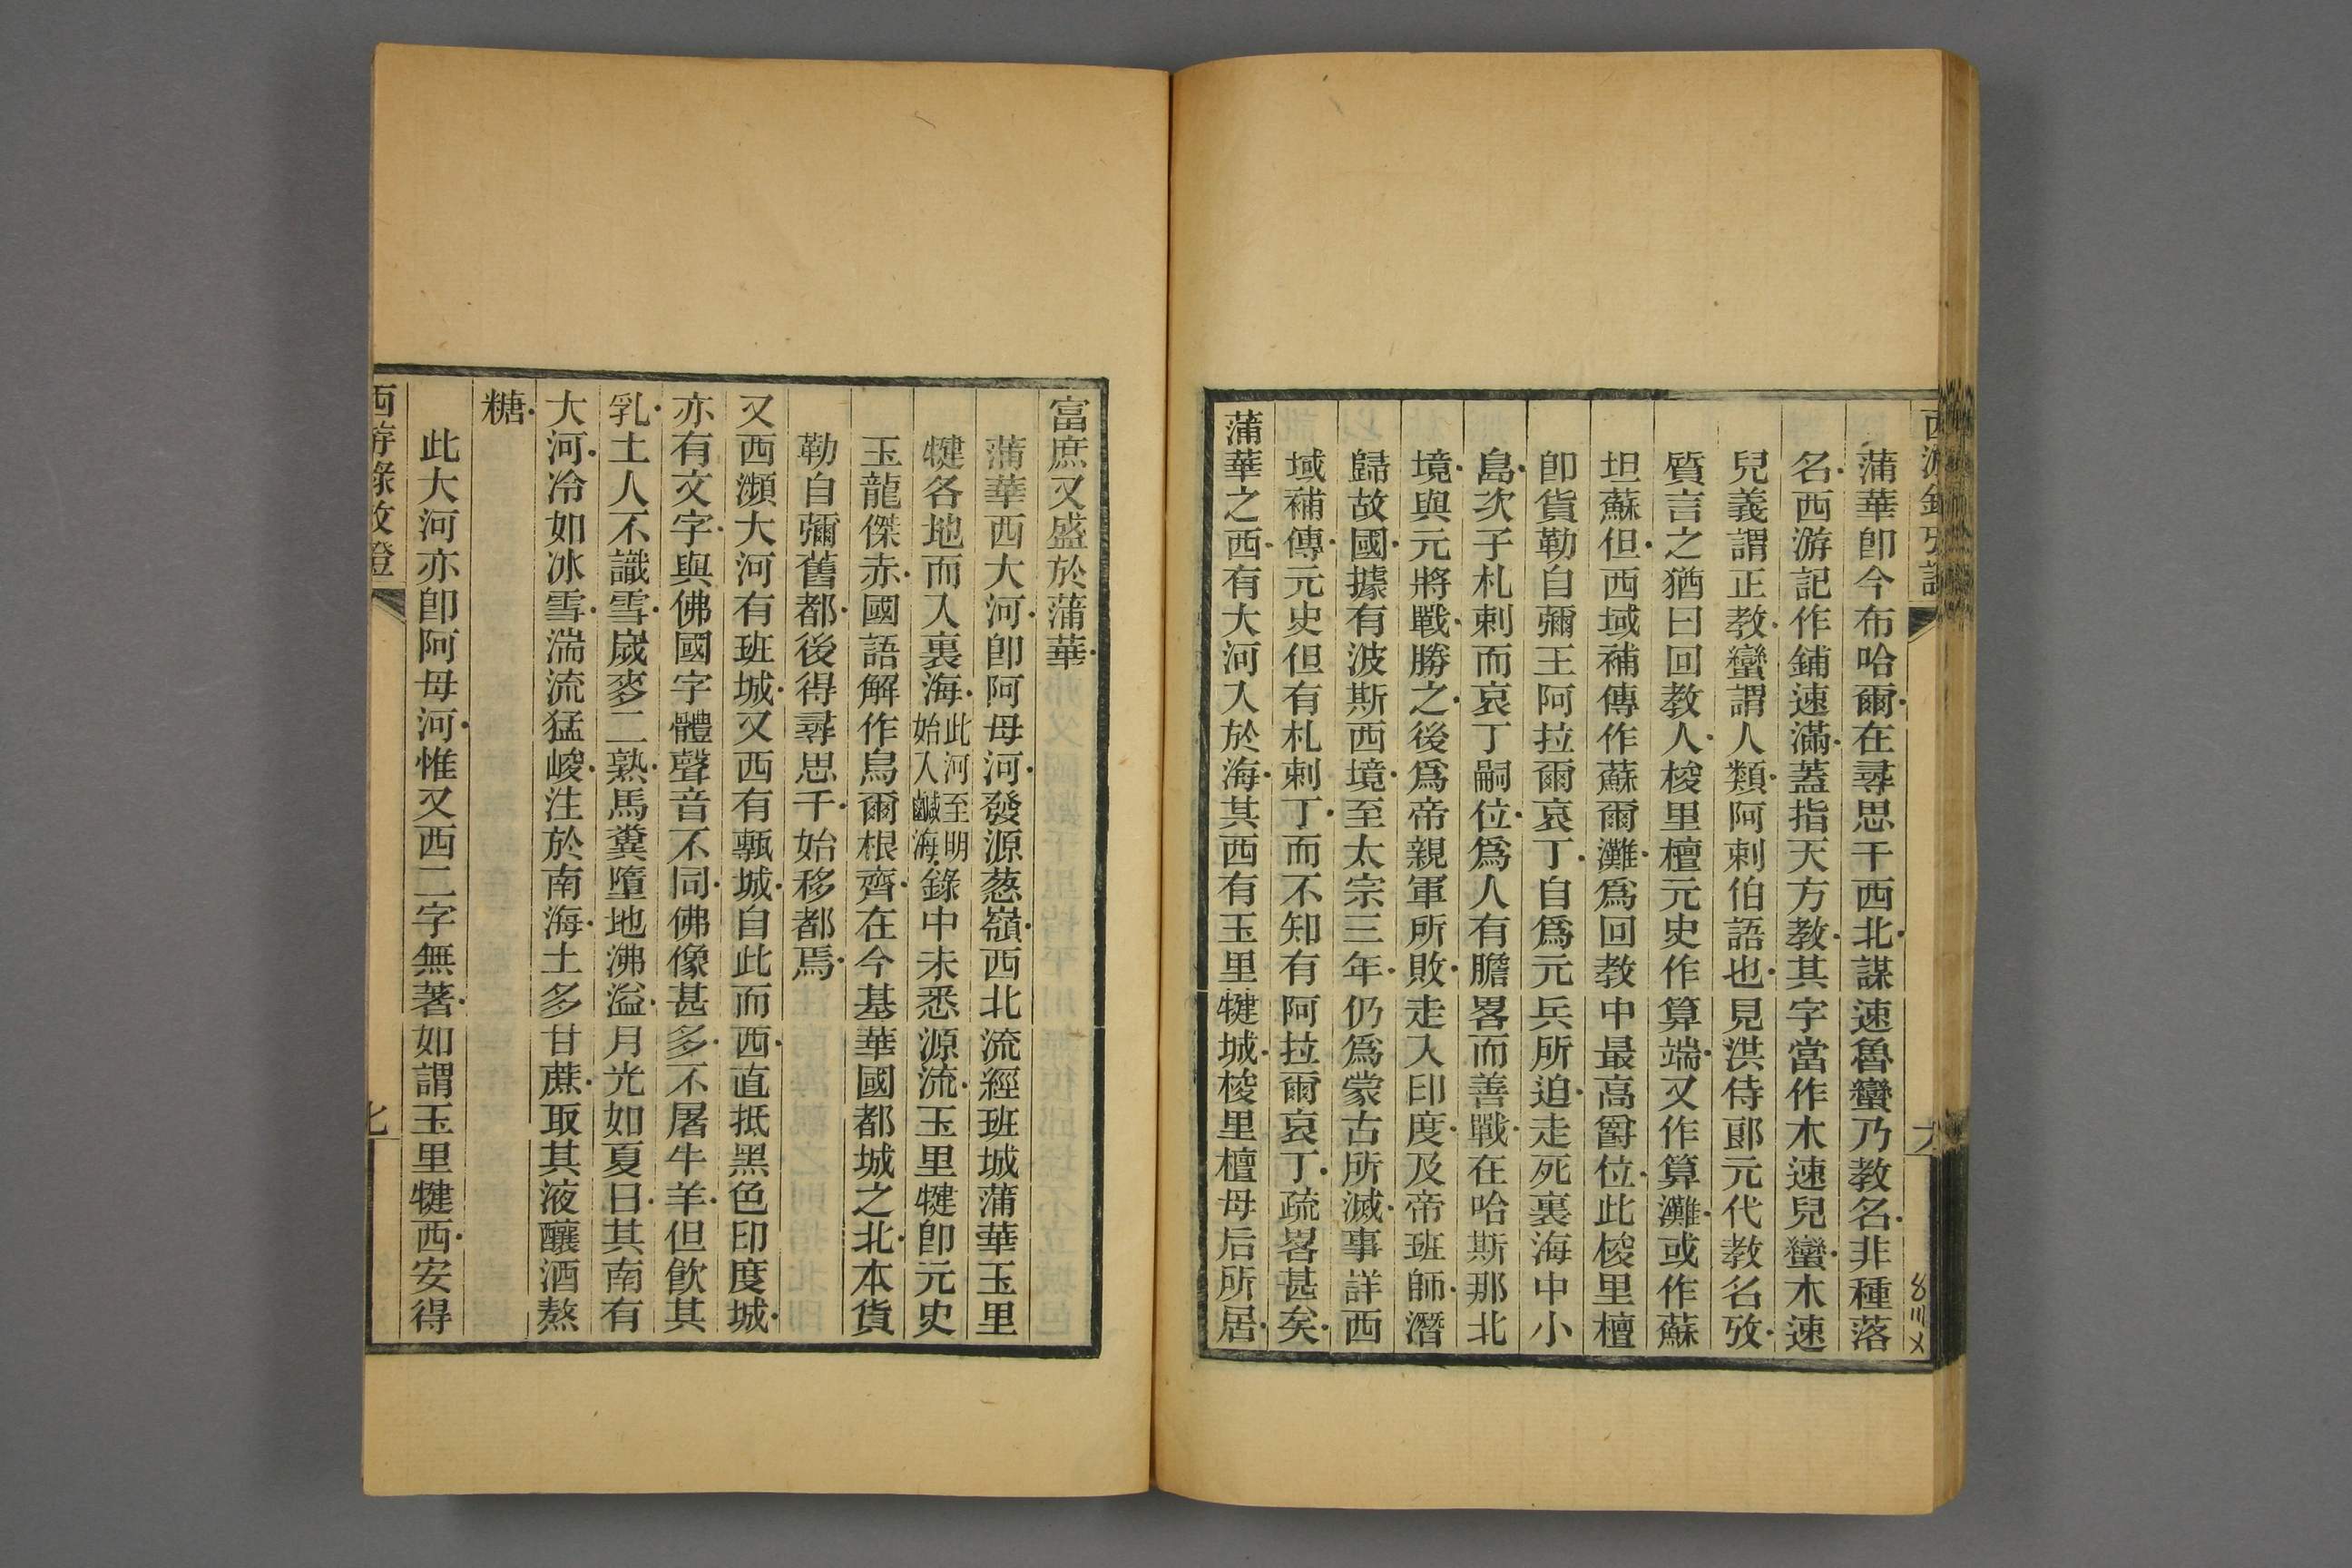 蒲華卽今布哈爾在尋思干西北謀速魯蠻乃教名非種落
名西游記作鋪速滿蓋指天方教其字當作木速兒蠻木速
兒義謂正教蠻謂人類阿剌伯語也見洪侍郎元代教名攷
質言之猶曰回教人梭里檀元史作算端又作算灘或作蘇
坦蘇但西域補傳作蘇爾灘爲回教中最高爵位此梭里檀
卽貨勒自彌王阿拉爾哀丁自爲元兵所迫走死裏海中小
島次子札剌而哀丁嗣位爲人有膽畧而善戰在哈斯那北
境與元將戰勝之後爲帝親軍所敗走入印度及帝班師潛
歸故國據有波斯西境至太宗三年仍爲蒙古所滅事詳西
域補傳元史但有札剌丁而不知有阿拉爾哀丁疏畧甚矣
蒲華之西有大河入於海其西有玉里犍城梭里檀母后所居
富庶又盛於蒲華
蒲華西大河卽阿母河發源葱嶺西北流經班城蒲華玉里
犍各地而入裏海此河至明始入鹹海錄中未悉源流玉里犍卽元史
玉龍傑赤國語解作烏爾根齊在今基華國都城之北本貨
勒自彌舊都後得尋思干始移都焉
又西瀕大河有班城又西有甎城自此而西直抵黑色印度城
亦有文字與佛國字體聲音不同佛像甚多不屠牛羊但飮其
乳土人不識雪歲麥二熟馬糞墮地沸溢月光如夏日其南有
大河冷如冰雪湍流猛峻注於南海土多甘蔗取其液釀酒熬
糖
此大河亦卽阿母河惟又西二字無著如謂玉里犍西安得
西游錄攷證
七